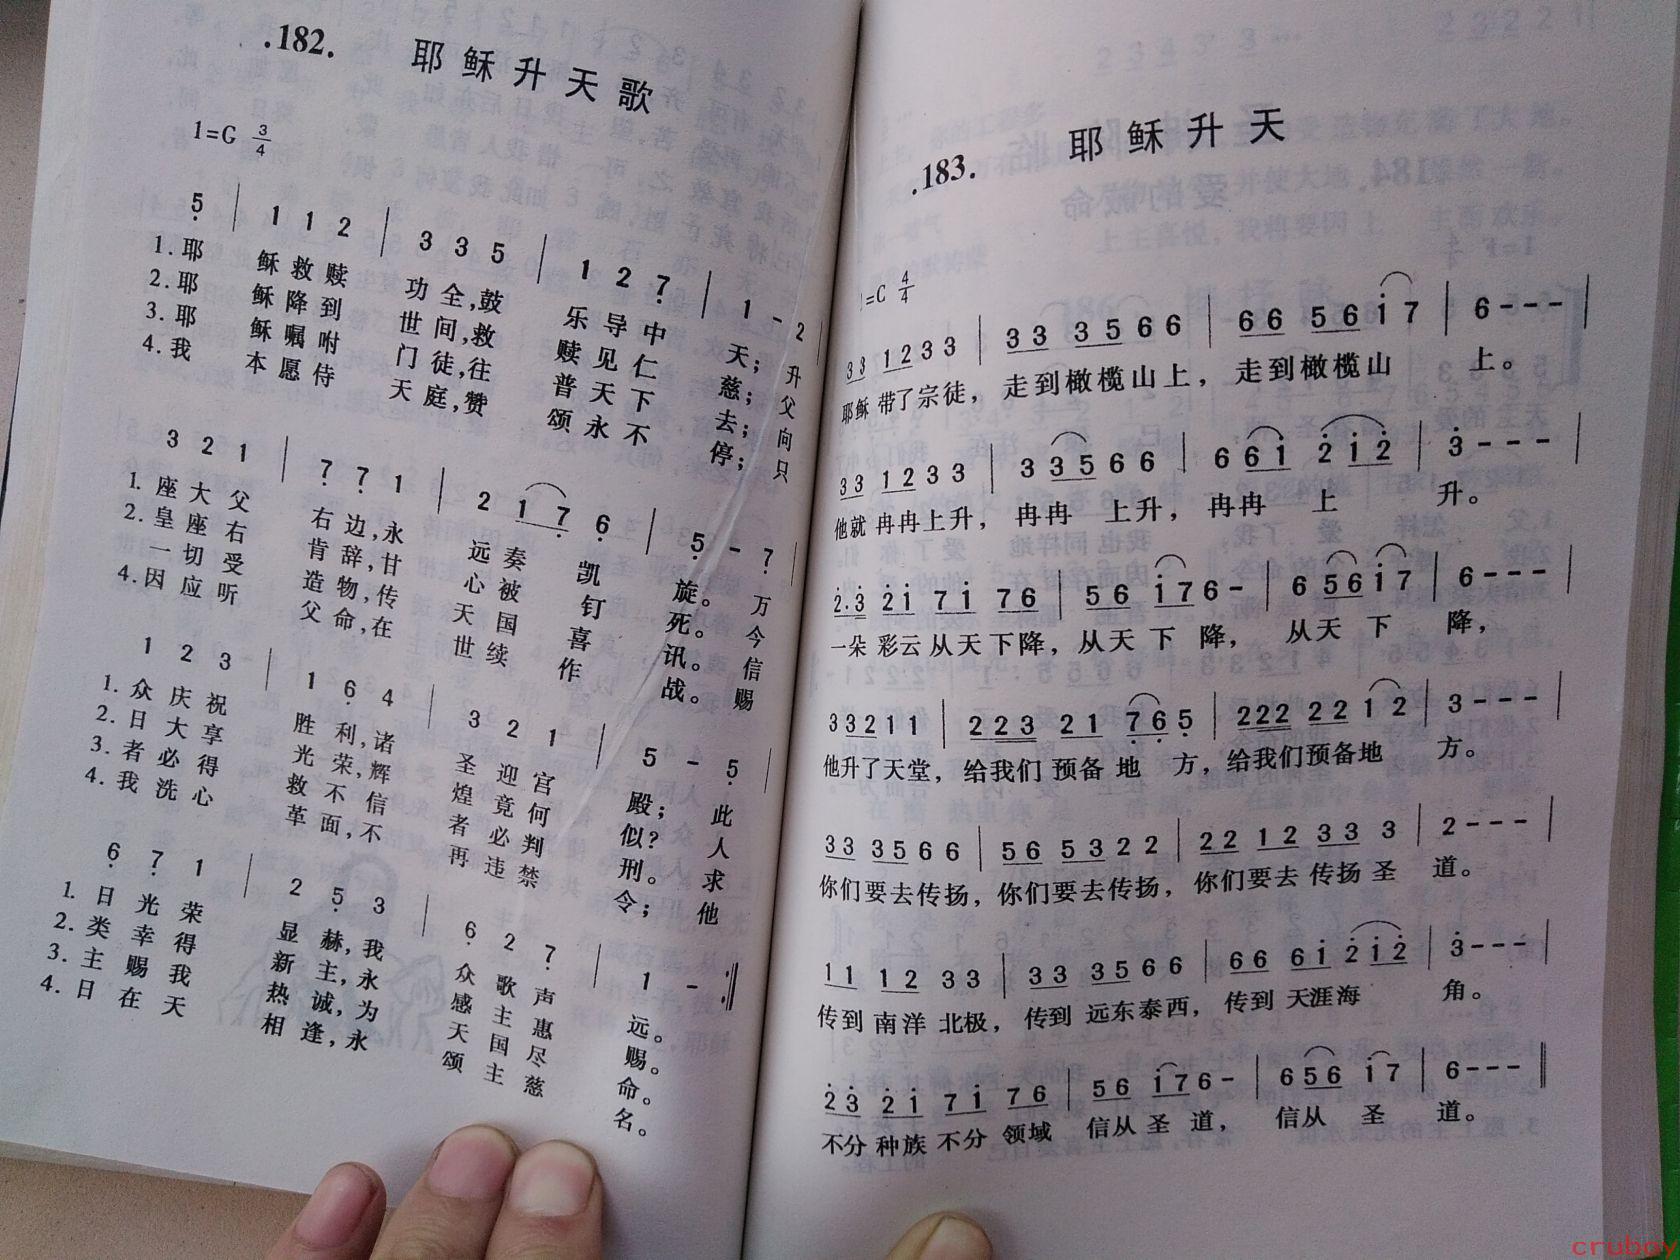 .182. 耶稣升天歌
1=G 3/4
5 | 1 1 2 | 3 3 5 | 1 2 7 | 1 - 2 |
1.耶 稣救赎 功全,鼓 乐导中 天; 升
2.耶 稣降到 世间,救 赎见仁 慈; 父
3.耶 稣嘱咐 门徒,往 普天下 去; 向
4.我 本愿侍 天庭,赞 颂永不 停; 只
3 2 1 | 7 7 1 | 2 1 7 6 | 5 - 7 |
1.座大父 右边,永 远奏凯 旋。 万
2.皇座右 肯辞,甘 心被钉 死。 今
一切受 造物,传 天国喜 讯。 信
4.因应听 父命,在 世续作 战。 赐
1 2 3 | 1 6 4 | 3 2 1 | 5 - 5 |
1.众庆祝 胜利,诸 圣迎宫 殿; 此
2.日大享 光荣,辉 煌竟何 似? 人
3.者必得 救不信 者必判 刑。 求
4.我洗心 革面,不 再违禁 令; 他
6 7 1 | 2 5 3 | 6 2 7 | 1 - :‖
1.日光荣 显赫,我 众歌声 远。
2.类幸得 新主,永 感主惠 赐。
3.主赐我 热诚,为 天国尽 命。
4.日在天 相逢,永 颂主慈 名。
.183. 耶稣升天
=C 4/4
3 3 1 2 3 3 | 3 3 3 5 6 6 | 6 6 5 6 i 7 | 6 - - - |
耶稣 带了宗徒, 走到橄榄山上, 走到橄榄山 上。
3 3 1 2 3 3 | 3 3 5 6 6 | 6 6 i 2 i 2 | 3 - - - |
他就 冉冉上升, 冉冉 上升, 冉冉 上 升。
2. 3 2 i 7 i 7 6 | 5 6 i 7 6 - | 6 5 6 i 7 | 6 - - - |
一朵 彩云 从天 下降, 从天 下 降, 从天 下 降,
3 3 2 1 1 | 2 2 3 2 1 7 6 5 | 2 2 2 2 2 1 2 | 3 - - - |
他升了天堂, 给我们 预备 地 方, 给我们预备地 方。
3 3 3 5 6 6 | 5 6 5 3 2 2 | 2 2 1 2 3 3 3 | 2 - - - |
你们要去传扬, 你们要去传扬, 你们要去 传扬 圣 道。
1 1 1 2 3 3 | 3 3 3 5 6 6 | 6 6 6 i 2 i 2 | 3 - - - |
传到 南洋 北极, 传到 远东泰西, 传到 天涯海 角。
2 3 2 i 7 i 7 6 | 5 6 i 7 6 - | 6 5 6 i 7 | 6 - - - ‖
不分 种族 不分 领域 信从 圣 道, 信从 圣 道。
cruboy